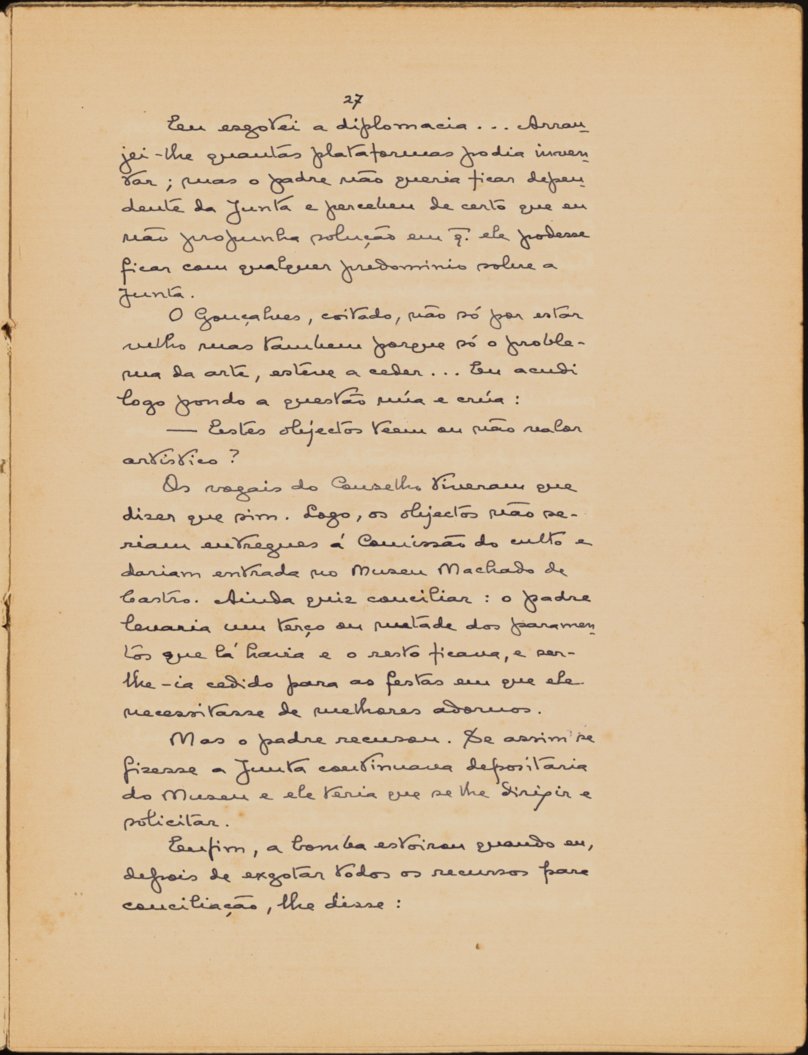 27
Eu esgotei a diplomacia... Arran-
jei-lhe quantas plataformas podia inven-
tar; mas o padre não queria ficar depen-
dente da Junta e percebeu de certo que eu
não propunha solução em q. ele podesse
ficar com qualquer predominio sobre a
Junta.
O Gonçalves, coitado, não só por estar
velho mas tambem porque só o proble-
ma da arte, esteve a ceder... Eu acudi
logo pondo a questão núa e crúa:
— Estes objectos teem ou não valor
artístico?
Os vogais do Conselho tiveram que
dizer que sim. Logo, os objectos não se-
riam entregues á Comissão do culto e
dariam entrada no Museu Machado de
Castro. Ainda quiz conciliar: o padre
levaria um terço ou metade dos paramen-
tos que lá havia e o resto ficava, e ser-
lhe-ia cedido para as festas em que ele
necessitasse de melhores adornos.
Mas o padre recusou. Se assim se
fizesse a Junta continuava depositaria
do Museu e ele teria que se lhe dirigir e
solicitar.
Enfim, a bomba estoirou quando eu,
depois de exgotar todos os recursos para
conciliação, lhe disse: